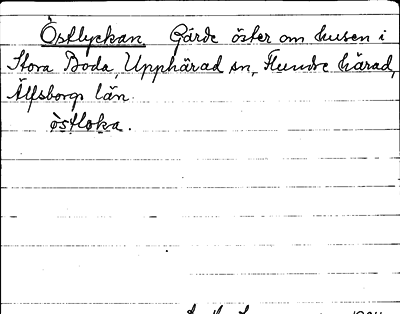 Östlyckan. Gärde öster om husen i
Stora Boda, Upphärad sn, Flundre härad,
Älfsborgs län.
östloka.